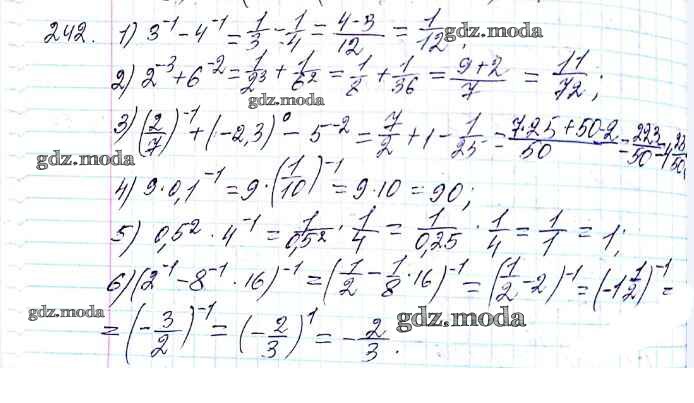 242. 1) 3⁻¹ - 4⁻¹ = 1/3 - 1/4 = (4-3)/12 = 1/12;
gdz.moda
2) 2⁻³ + 6⁻² = 1/2³ + 1/6² = 1/8 + 1/36 = (9+2)/7 = 11/72;
gdz.moda
3) (2/7)⁻¹ + (-2,3)⁰ - 5⁻² = 7/2 + 1 - 1/25 = (7·25+50-2)/50 = 223/50 = 4 23/50
gdz.moda
4) 9·0,1⁻¹ = 9·(1/10)⁻¹ = 9·10 = 90;
5) 0,5² · 4⁻¹ = 1/0,5² · 1/4 = 1/0,25 · 1/4 = 1/1 = 1;
6) (2⁻¹ - 8⁻¹ · 16)⁻¹ = (1/2 - 1/8 · 16)⁻¹ = (1/2 - 2)⁻¹ = (-1 1/2)⁻¹ =
gdz.moda gdz.moda
= (-3/2)⁻¹ = (-2/3)¹ = -2/3.